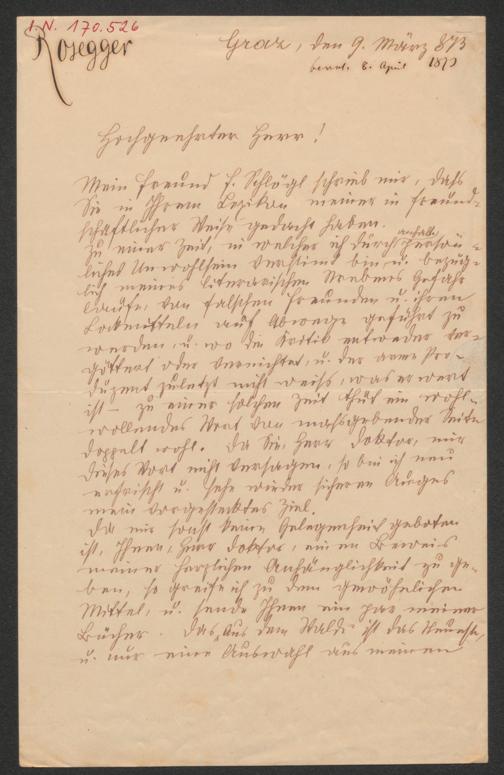 I. N. 170.526
Rosegger
Graz, den 9. März 873
beant. 8. April 1873
Hochgeehrter Herr!
Mein Freund F. Schlögl schrieb mir, daß
Sie in Ihrem Lexikon meiner in freund-
schaftlicher Weise gedacht haben.
Zu einer Zeit, in welcher ich durch anhalt. persön-
liches Unwohlsein verstimt bin u. bezüg-
lich meines literarischen Strebens Gefahr
laufe, von falschen Freunden u. ihren
Lockmitteln auf Abwege geführt zu
werden, u. wo die Kritik entweder ver-
göttert oder vernichtet, u. der arme Pro-
duzent zuletzt nicht weiß, was er wert
ist – zu einer solchen Zeit thut ein wohl-
wollendes Wort von maßgebender Seite
doppelt wohl. Da Sie, Herr Doktor, mir
dieses Wort nicht versagen, so bin ich neu
erfrischt u. sehe wieder sicheren Auges
mein vorgestecktes Ziel.
Da mir sonst keine Gelegenheit geboten
ist, Ihnen, Herr Doktor, einen Beweis
meiner herzlichen Anhänglichkeit zu ge-
ben, so greife ich zu dem gewöhnlichen
Mittel, u. sende Ihnen ein par meiner
Bücher. Das „Aus dem Walde“ ist das Neueste,
u. nur eine Auswahl aus meinen